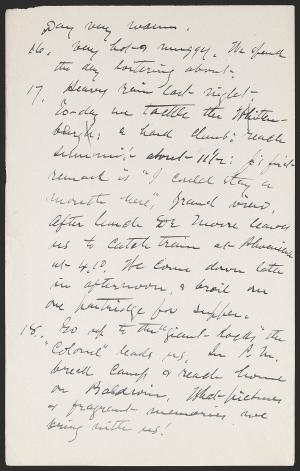 Day very warm.
16. Very hot & muggy. We spend
the day loitering about.
17. Heavy rain last night.
To-day we tackle the Witten-
berg; a hard climb; reach
summit about 11½:
remark is "I could stay a
month here", grand view.
After lunch Dr Moore leaves
us to catch train at Phoenicia
at 4.10. We come down late
in afternoon, & broil our
one partridge for supper.
18. Go up to the "giant ledge" the
"Colonel" leads us. In P.M.
break camp & reach home
on Baldwin. What pictures
& fragrant memories we
bring with us!